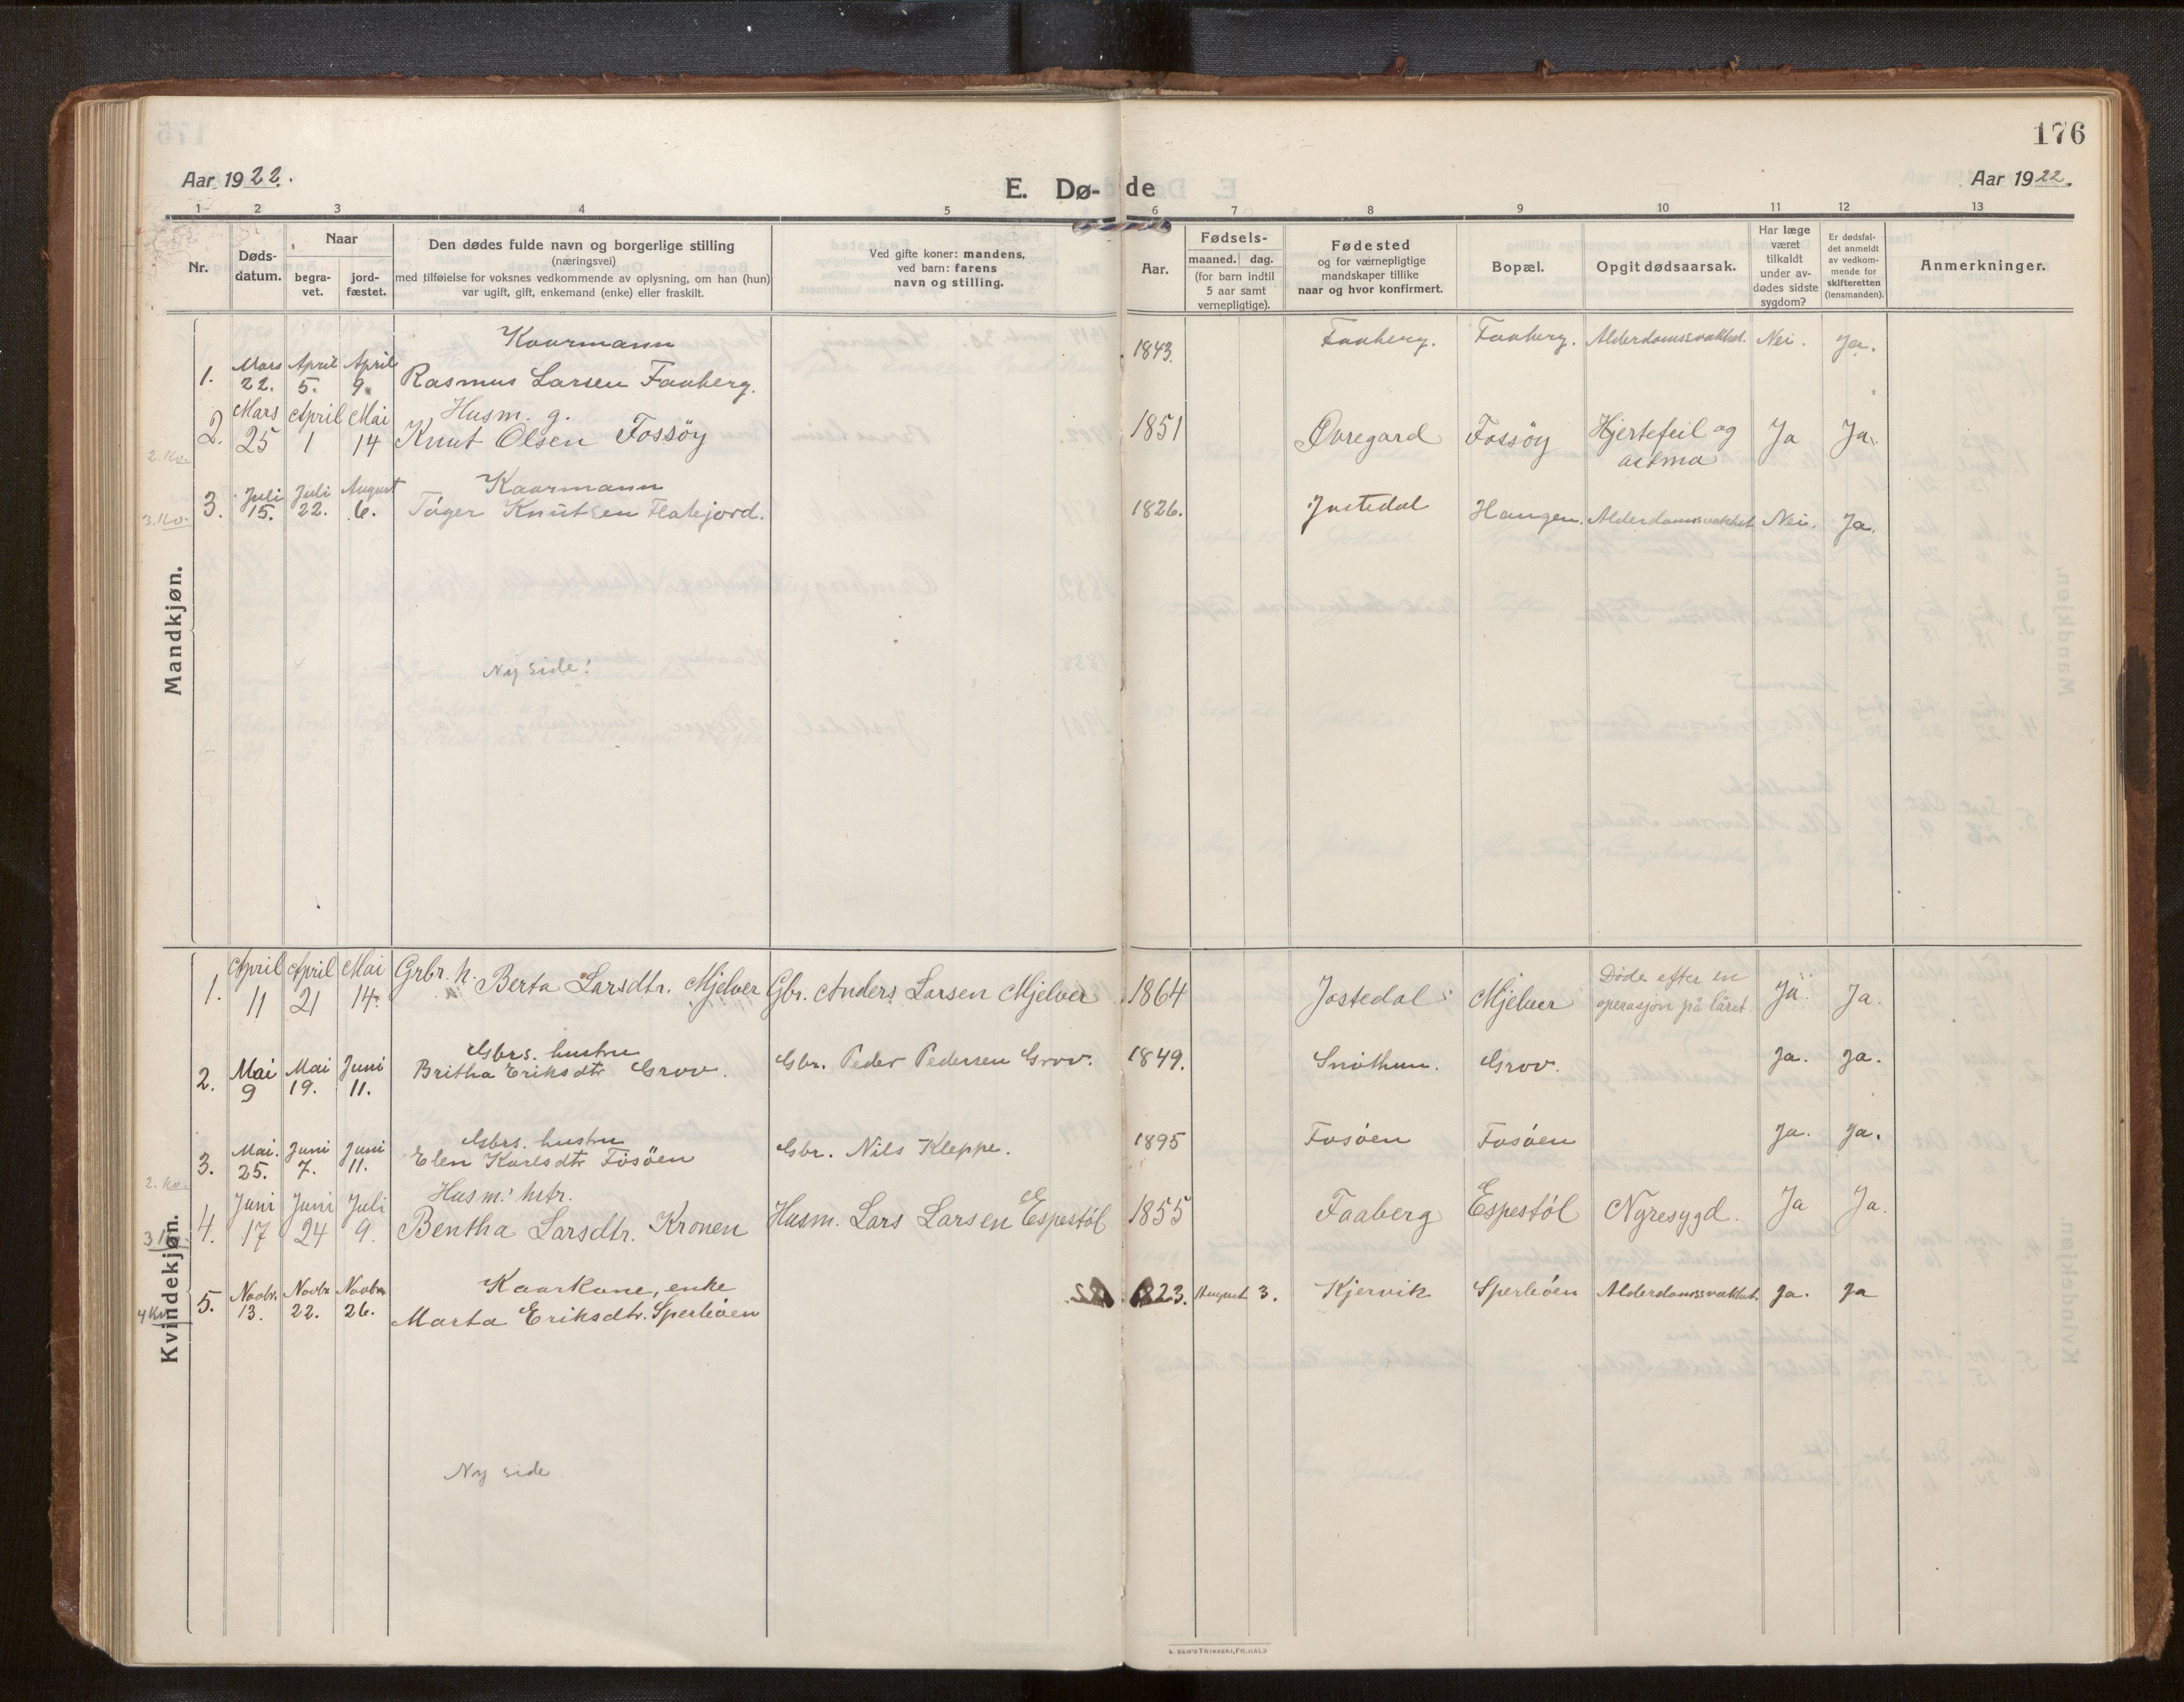 176
Aar 1922.
E. Dø-
de
Aar 1922.
1 2 3 4 5 6 7 8 9 10 11 12 13
Nr.
Døds-
datum.
Naar
begra-
vet.
jord-
fæstet.
Den dødes fulde navn og borgerlige stilling
(næringsvei)
med tilføielse for voksnes vedkommende av oplysning, om han (hun)
var ugift, gift, enkemand (enke) eller fraskilt.
Ved gifte koner: mandens,
ved barn: farens
navn og stilling.
Aar.
Fødsels-
maaned. dag.
(for barn indtil
5 aar samt
vernepligtige).
Fødested
og for værnepligtige
mandskaper tillike
naar og hvor konfirmert.
Bopæl.
Opgit dødsaarsak.
Har læge
været
tilkaldt
under av-
dødes sidste
sygdom?
Er dødsfal-
det anmeldt
av vedkom-
mende for
skifteretten
(lensmanden).
Anmerkninger.
Mandkjøn.
Kaarmann
1. Mars 22. April 5. April 9. Rasmus Larsen Faaberg. 1843. Faaberg. Faaberg. Alderdomssvakhet. Nei. Ja.
Husm. g.
2. Mars 25 April 1 Mai 14 Knut Olsen Fossöy 1851 Øvregard Fossöy Hjertefeil og astma Ja Ja.
2. Kv.
Kaarmann
3. Juli 15. Juli 22. August 6. Töger Knutsen Flatejord. 1826. Jostedal Haugen. Alderdomssvakhet Nei. Ja.
3. Kv.
Ny side!
Kvindekjøn.
1. April 11 April 21 Mai 14. Grbr. h. Berta Larsdtr. Mjelver Gbr. Anders Larsen Mjelver 1864 Jostedal Mjelver Döde efter en
operasjon på låret Ja. Ja.
Gbrs. hustru
2. Mai 9 Mai 19. Juni 11. Britha Eriksdtr Grov. Gbr. Peder Pedersen Grov. 1849. Snöthun. Grov. Ja. Ja.
Gbrs. hustru
3. Mai. 25. Juni 7. Juni 11. Elen Karlsdtr Fosöen Gbr. Nils Kleppe. 1895 Fosöen Fosöen Ja. Ja.
2. Kv.
Husm. hstr.
4. Juni 17 Juni 24 Juli 9. Bentha Larsdtr. Kronen Husm. Lars Larsen Espestöl 1855 Faaberg Espestöl Nyresygd. Ja Ja.
3 Kv.
Kaarkone, enke
5. Novbr. 13. Novbr 22. Novbr 26. Marta Eriksdtr. Sperleöen 1823. August 3. Kjervik Sperleöen Alderdomssvakhet. Ja. Ja
4 Kv.
Ny side